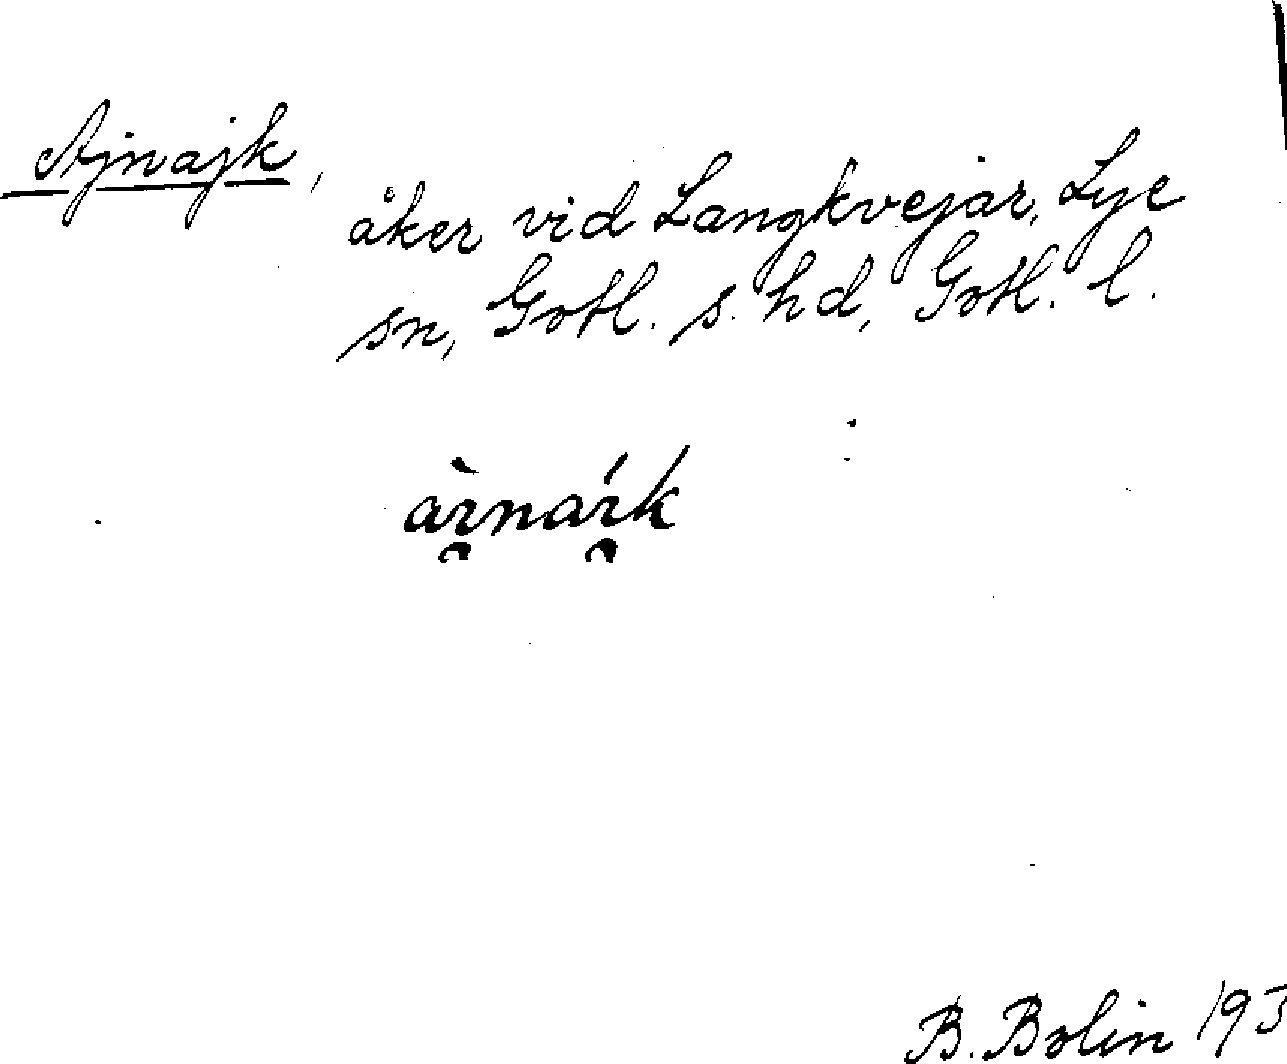 Ajnajk,
åker vid Langkvejar, Lye
sn, Gotl. s. hd, Gotl. l.
B. Bolin 193